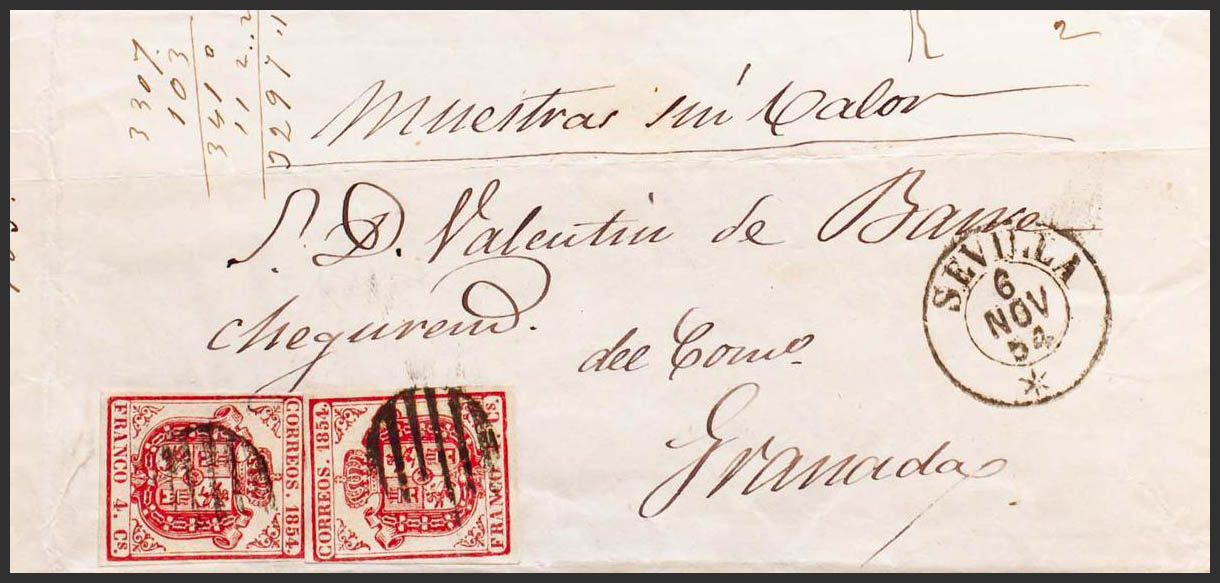 3307.
103
3410
112..2
R 2
Muestras sin Valor
S. D. Valentin de Barre
chegurend.
del Como
Granada
SEVILLA
6
NOV
54
FRANCO 4. Cs.
CORREOS. 1854.
CORREOS. 1854.
FRANCO Cs.